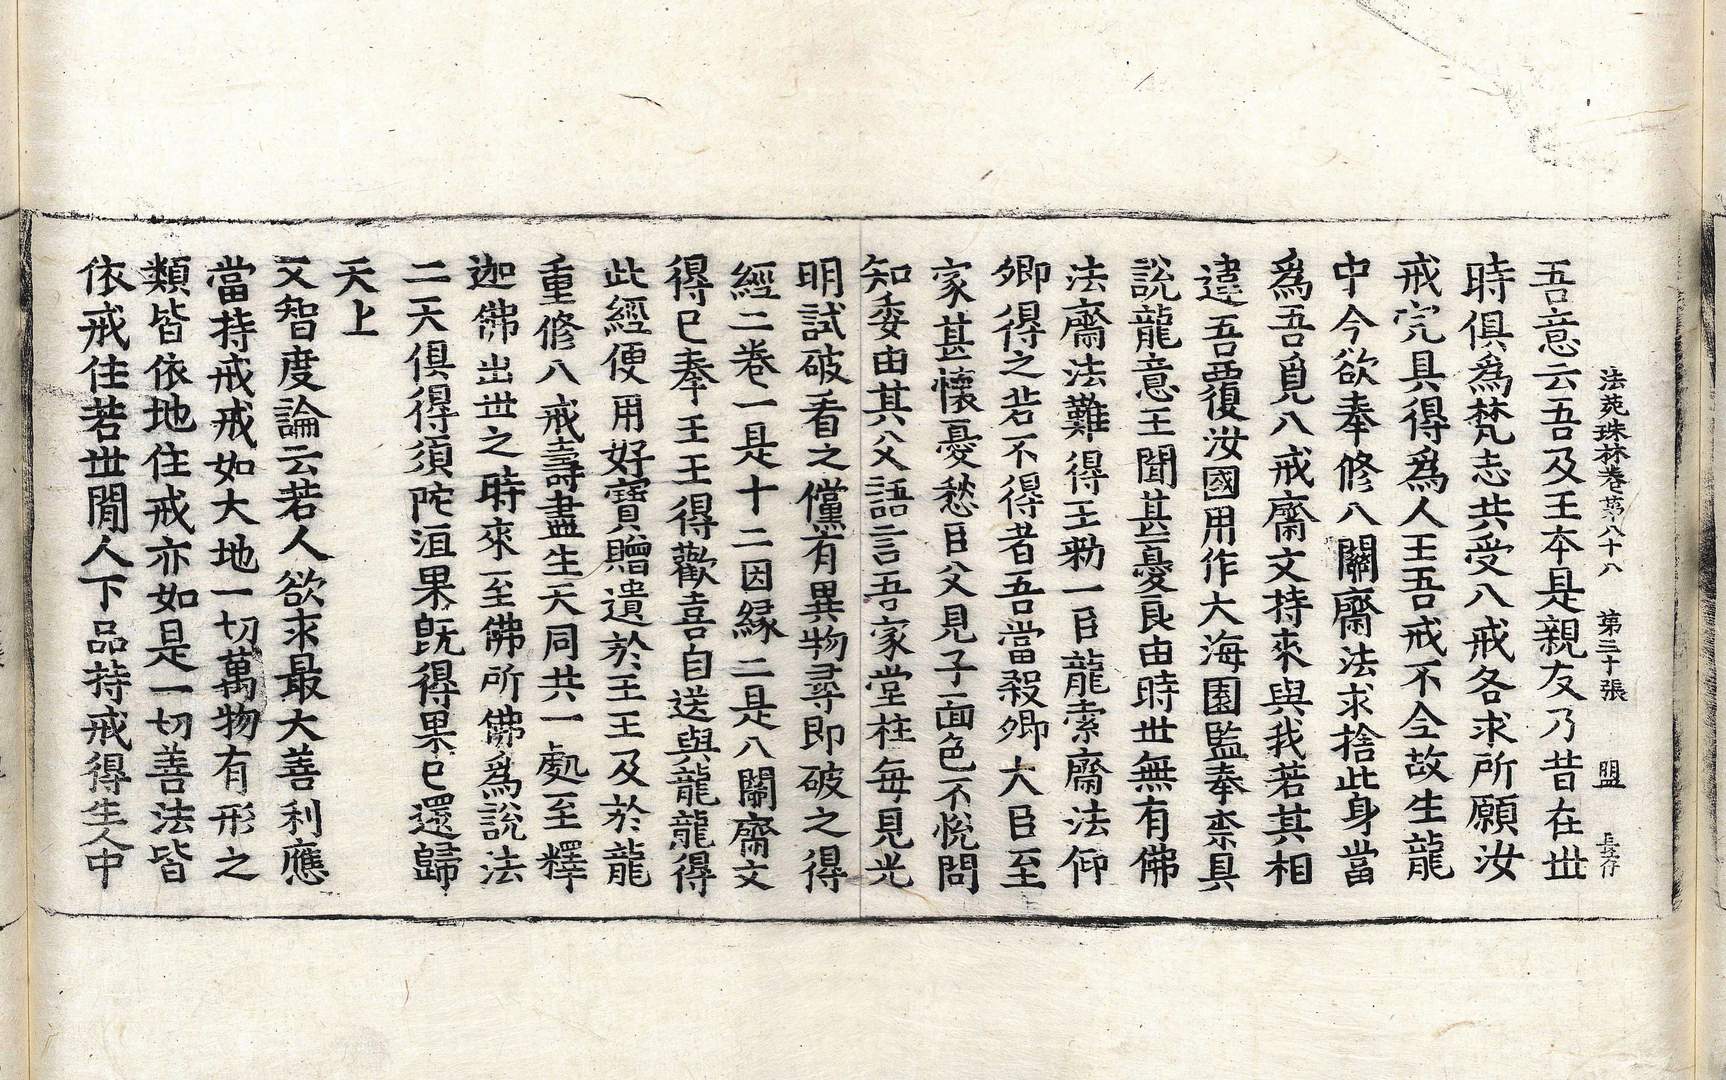 法苑珠林卷第八十八 第三十張 盟 長存
吾意云吾及王本是親友乃昔在世
時俱爲梵志共受八戒各求所願汝
戒完具得爲人王吾戒不全故生龍
中今欲奉修八關齋法求捨此身當
爲吾覓八戒齋文持來與我若其相
違吾覆汝國用作大海園監奉柰具
說龍意王聞甚憂良由時世無有佛
法齋法難得王勑一臣龍索齋法仰
卿得之若不得者吾當殺卿大臣至
家甚懷憂愁臣父見子面色不悅問
知委由其父語言吾家堂柱每見光
明試破看之儻有異物尋即破之得
經二卷一是十二因緣二是八關齋文
得已奉王王得歡喜自送與龍龍得
此經便用好寶贈遺於王王及於龍
重修八戒壽盡生天同共一處至釋
迦佛出世之時來至佛所佛爲說法
二天俱得須陀洹果旣得果已還歸
天上
又智度論云若人欲求最大善利應
當持戒戒如大地一切萬物有形之
類皆依地住戒亦如是一切善法皆
依戒住若世閒人下品持戒得生人中